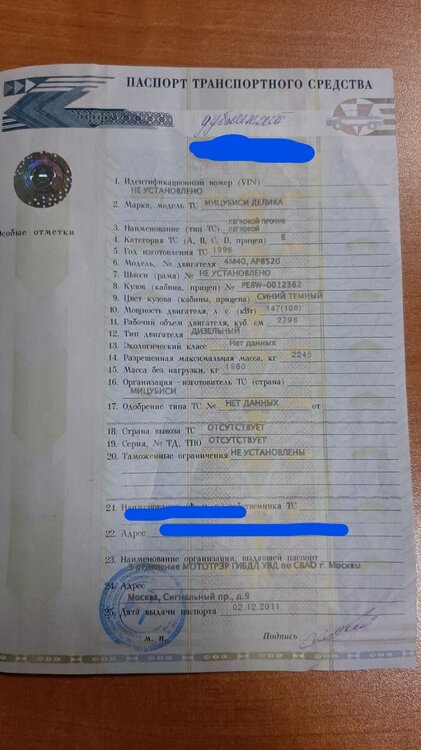 ПАСПОРТ ТРАНСПОРТНОГО СРЕДСТВА
дубликат
Особые отметки
1. Идентификационный номер (VIN)
НЕ УСТАНОВЛЕНО
2. Марка, модель ТС МИЦУБИСИ ДЕЛИКА
ЛЕГКОВОЙ ПРОЧИЕ
3. Наименование (тип ТС) ЛЕГКОВОЙ
4. Категория ТС (А, В, С, D, прицеп) B
5. Год изготовления ТС 1996
6. Модель, № двигателя 4М40, АР8520
7. Шасси (рама) № НЕ УСТАНОВЛЕНО
8. Кузов (кабина, прицеп) № PE8W-0012382
9. Цвет кузова (кабины, прицепа) СИНИЙ ТЕМНЫЙ
10. Мощность двигателя, л. с. (кВт) 147(108)
11. Рабочий объем двигателя, куб. см 2796
12. Тип двигателя ДИЗЕЛЬНЫЙ
13. Экологический класс Нет данных
14. Разрешенная максимальная масса, кг 2245
15. Масса без нагрузки, кг 1860
16. Организация—изготовитель ТС (страна)
МИЦУБИСИ
17. Одобрение типа ТС № НЕТ ДАННЫХ от
18. Страна вывоза ТС ОТСУТСТВУЕТ
19. Серия, № ТД, ТПО ОТСУТСТВУЕТ
20. Таможенные ограничения НЕ УСТАНОВЛЕНЫ
21. ТС
22. Адрес
23. Наименование организации, выдавшей паспорт
отделение МОТОТРЭР ГИБДД УВД по СВАО г. Москвы
24. Адрес
Москва, Сигнальный пр., д.9
25. Дата выдачи паспорта 02.12.2011
М. П. Подпись